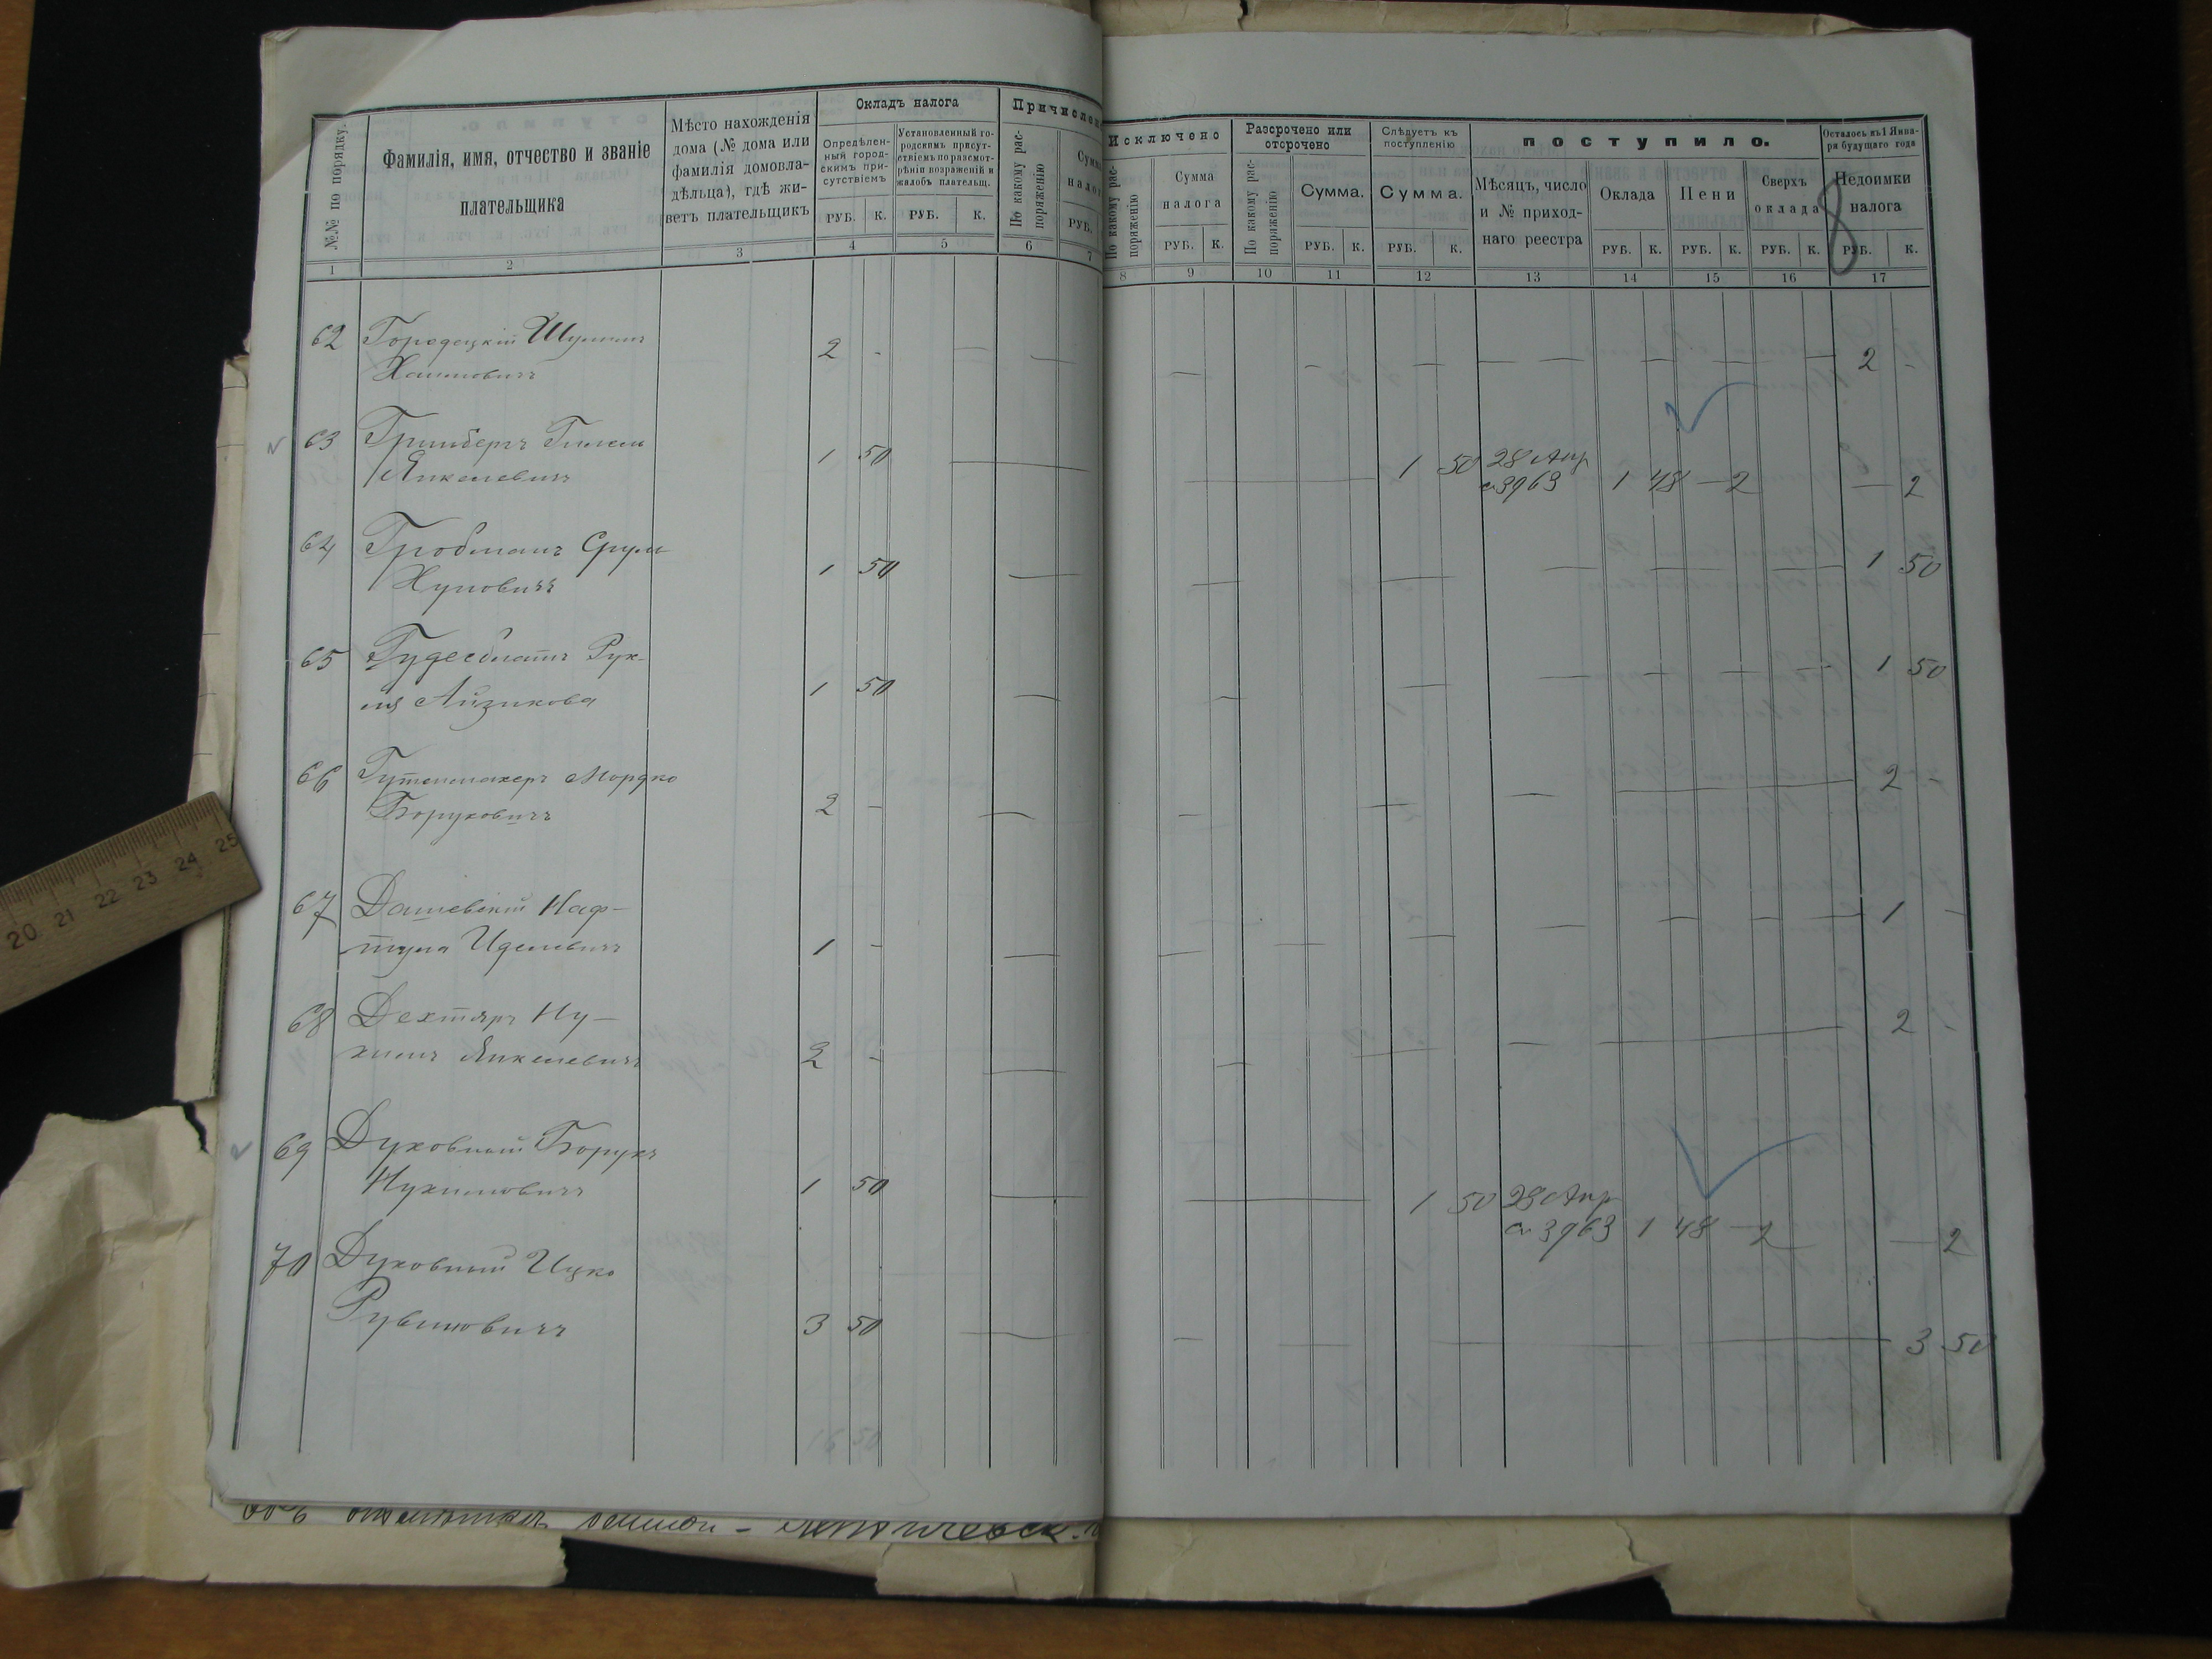 №№ по порядку.
Фамилія, имя, отчество и званіе
плательщика
Мѣсто нахожденія
дома (№ дома или
фамилія домовла-
дѣльца), гдѣ жи-
ветъ плательщикъ
Окладъ налога
Опредѣлен-
ный город-
скимъ при-
сутствіемъ
РУБ. К.
Установленный го-
родскимъ присут-
ствіемъ по разсмот-
рѣніи возраженій и
жалобъ плательщ.
РУБ. К.
Причислен
По какому рас-
поряженію
Сумм
налог
РУБ.
Исключено
По какому рас-
поряженію
Сумма
налога
РУБ. К.
Разсрочено или
отсрочено
По какому рас-
поряженію
Сумма.
РУБ. К.
Слѣдуетъ къ
поступленію
Сумма.
РУБ. К.
поступило.
Мѣсяцъ, число
и № приход-
наго реестра
Оклада
РУБ. К.
Пени
РУБ. К.
Сверхъ
оклада
РУБ. К.
Осталось къ 1 Янва-
ря будущаго года
Недоимки
налога
РУБ. К.
8
1 2 3 4 5 6 7 8 9 10 11 12 13 14 15 16 17
62 Городецкій Шулимъ
Хаимовичъ 2 - 2 -
63 Гринбергъ Гилель
Янкелевичъ 1 50 1 50 28 Апр
№ 3963 1 48 — 2 — 2
64 Гробманъ Срул
Хуновичъ 1 50 1 50
65 Гудесблатъ Рух-
ля Айзикова 1 50 1 50
66 Гутенмахеръ Мордко
Боруховичъ 2 - 2 -
67 Дашевскій Наф-
тула Иделевичъ 1 - 1 -
68 Дехтяръ Ну-
химъ Янкелевичъ 2 - 2 -
69 Духовный Борухъ
Нухимовичъ 1 50 1 50 28 Апр
№ 3963 1 48 — 2 — 2
70 Духовный Ицко
Рувиновичъ 3 50 3 50
16 50
20 21 22 23 24 25